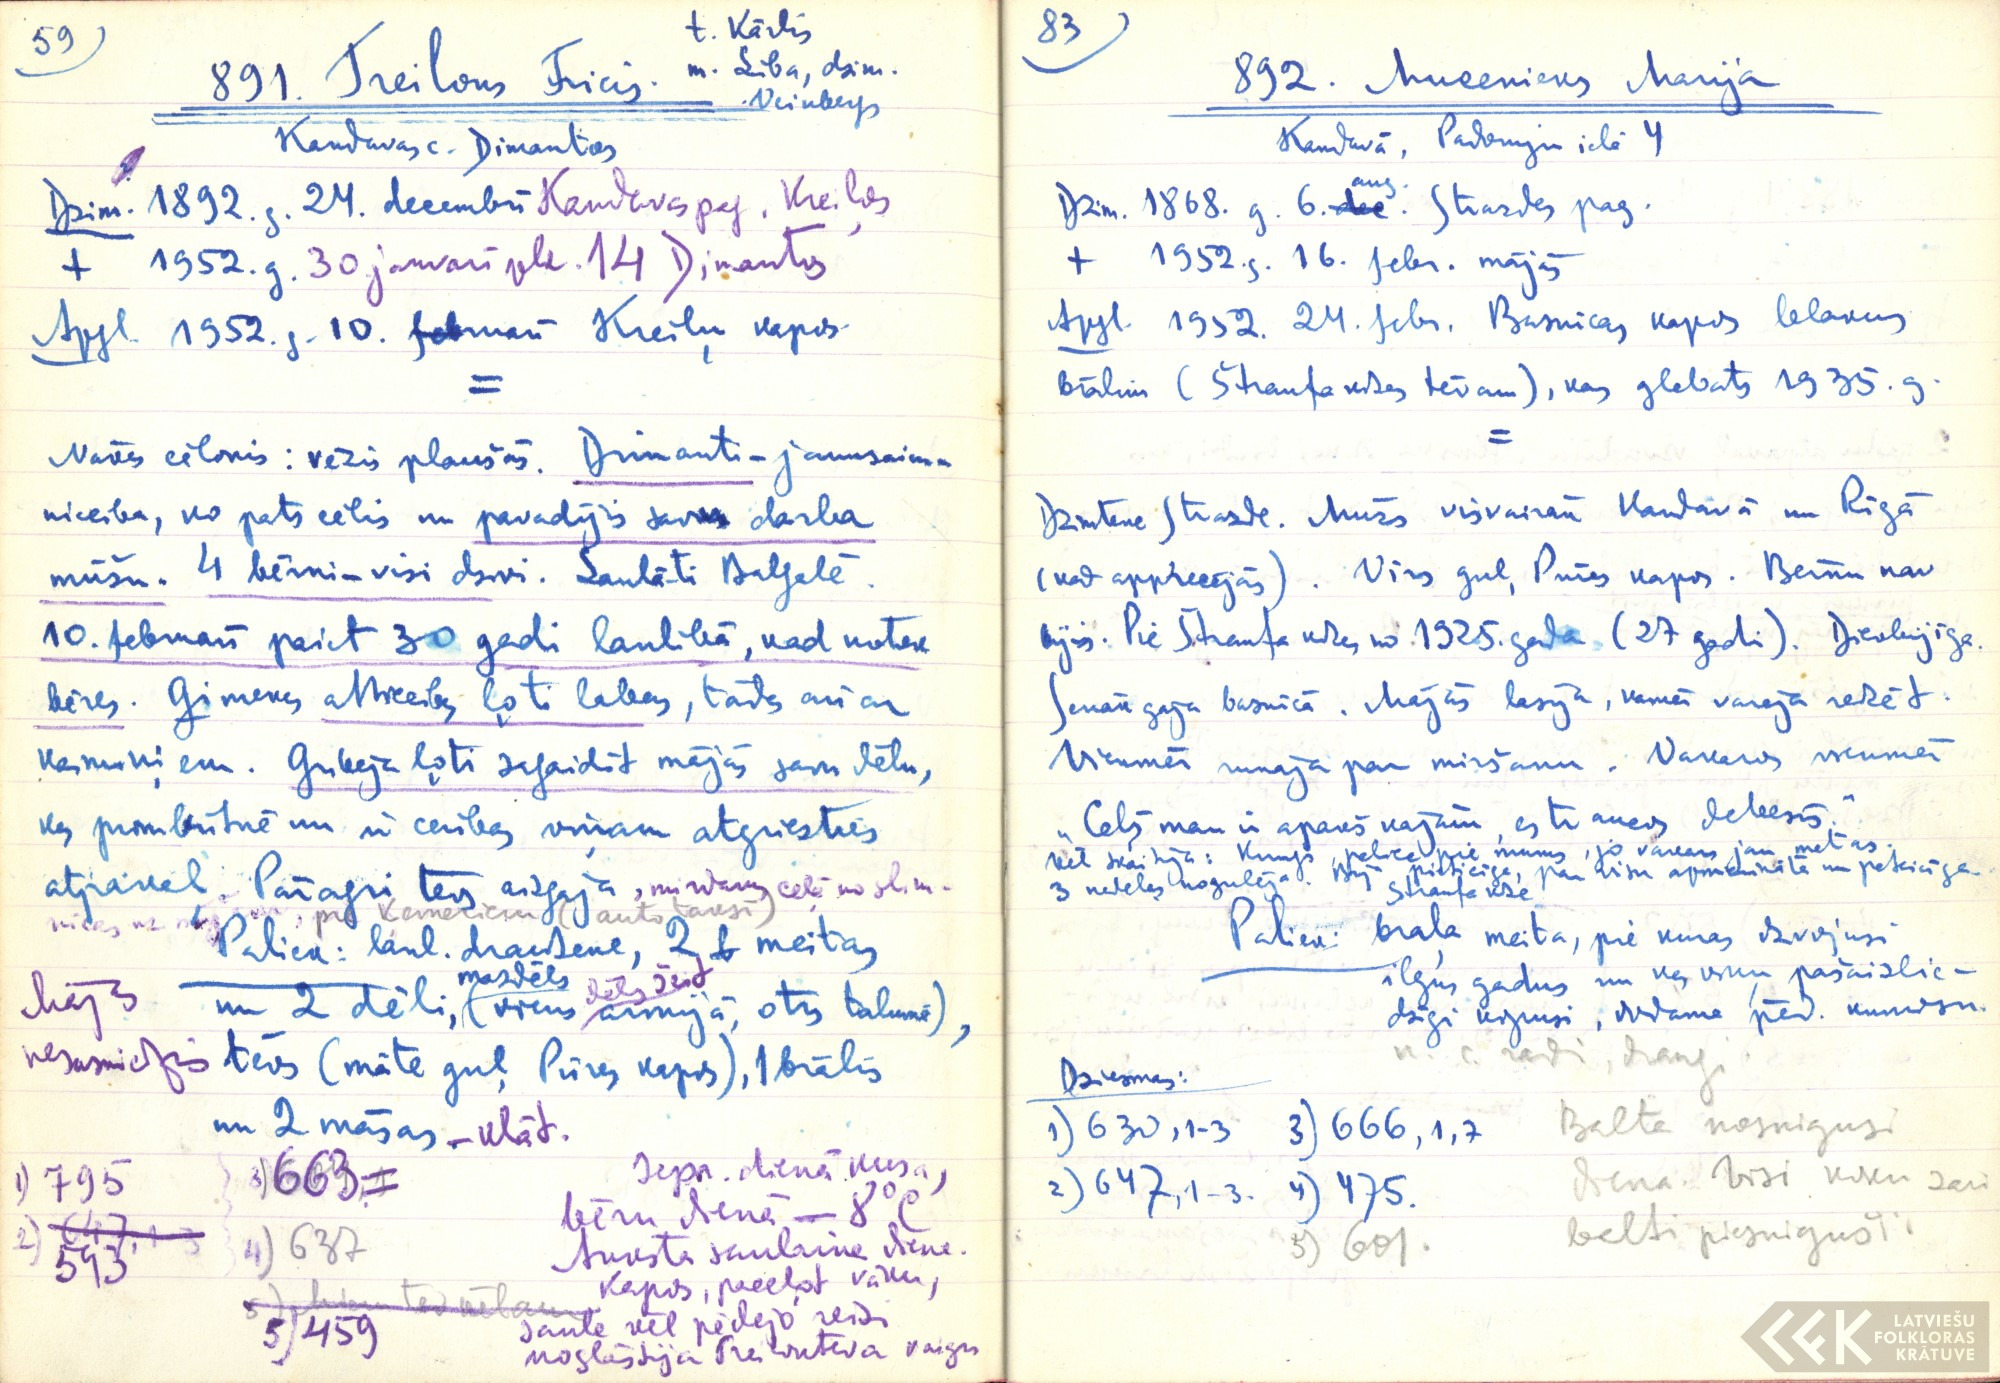 59)
891. Treilons Fricis. t. Kārlis
m. Lība, dzim.
Veinbergs
Kandavas c. Dimantos
Dzim. 1892. g. 24. decembrī Kandavas pag. Kreiļos
+ 1952. g. 30 janvarī plk. 14 Dimantos
Apgl. 1952. g. 10. februarī Kreiļu kapos.
=
Nāves cēlonis: vēzis plaušās. Dimanti – jaunsaim-
nieciba, ko pats cēlis un pavadījis savu darba
mūžu. 4 bērni – visi dzīvi. Laulāti Balgalē.
10. februarī paiet 30 gadi laulībā, kad notiek
bēres. Ģimenes attiecības ļoti labas, tāds arī ar
kaimiņiem. Gribēja ļoti sagaidīt mājās savu dēlu,
kas prombūtnē un ir cerības viņam atgriezties
atpakaļ. Pāragri tēvs aizgāja, mirdams ceļā no slim-
nicas uz mājām, pie Ķemeriem (autotaksī)
Paliek: laul. draudzene, 2 meitas
mazdēls dēls šeit
un 2 dēli, (viens armijā, otrs tālumā),
Mājās
nesasniedzis tēvs (māte guļ Pūres kapos), 1 brālis
un 2 māsas – klāt.
1) 795 3) 663, =
2) 647, 1-3
593 4) 637
5) 459
Sepr. dienā kusa,
bēru dienā – 8°C
Auksta saulaina diena.
Kapos, paceļot vāku,
saule vēl pēdējo reizi
noglāstīja Treilontēva vaigu
83)
892. Mucenieks Marija
Kandavā, Padomju ielā 4
aug.
Dzim. 1868. g. 6. dec. Strazdes pag.
+ 1952. g. 16. febr. mājās
Apgl. 1952. 24. febr. Basnicas kapos blakus
brālim (Štraufa kdzes tēvam), kas glabāts 1935. g.
=
Dzimtene Strazde. Mūžs visvairāk Kandavā un Rīgā
(kad apprecējās). Vīrs guļ Pūres kapos. Bērnu nav
bijis. Pie Štraufa kdzes no 1925. gada (27 gadi). Dievbijīga.
Senāk gāja baznīcā. Mājās lasīja, kamēr varēja redzēt.
Vienmēr runāja par miršanu. Vakaros vienmēr
„Ceļš man ir apakš kājām, es tt aucos debesīs."
Vēl skaitīja: Kungs, paliec pie mums, jo vakars jau metas.
3 nedeļas nogulēja. Bij pieticīga, par visu apmierinātā un pateicīga.
Štraufa kdze
Paliek: brāļa meita, pie kuras dzīvojusi
ilgus gadus un kas viņu pašaizlie-
dzīgi kopusi, dodama pēd. kumosu.
u. c. radi, draugi.
Dziesmas:
1) 630, 1-3 3) 666, 1, 7
2) 647, 1-3. 4) 475.
5) 601.
Balta nosnigusi
diena. Visi koku zari
balti piesniguši.
LATVIEŠU
FOLKLORAS
KRĀTUVE